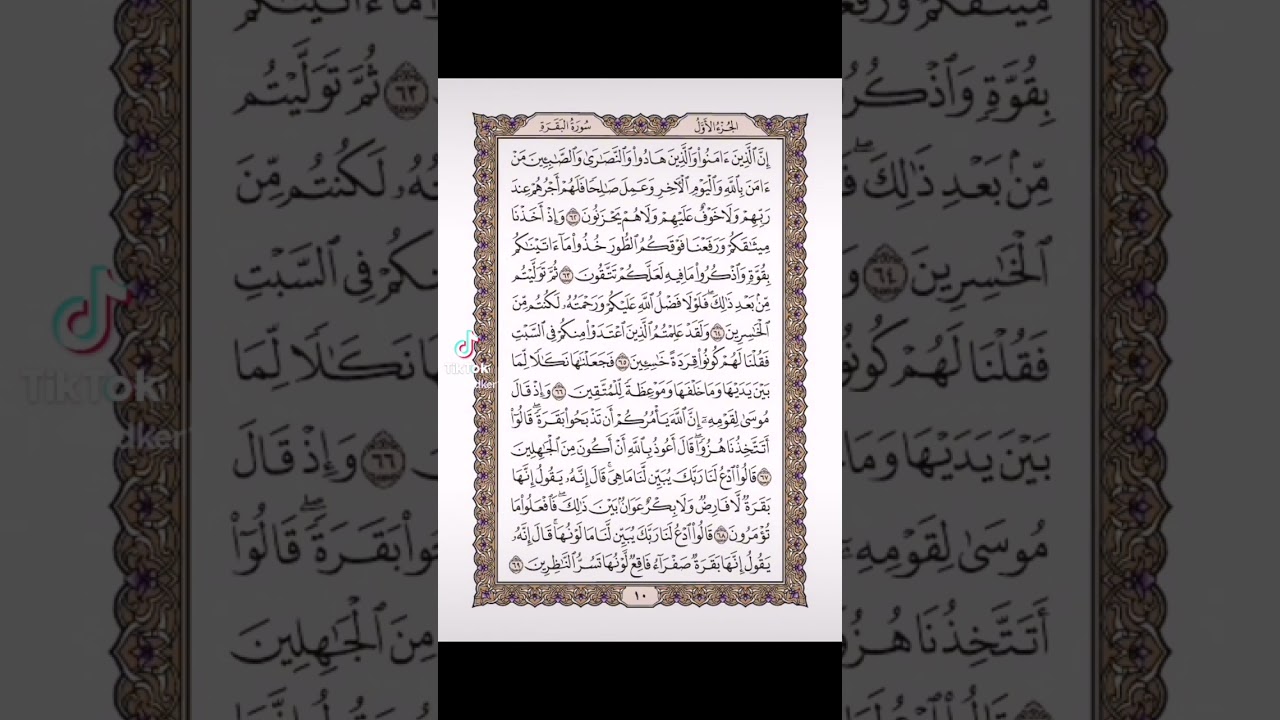 الجزء الأول
سورة البقرة
إِنَّ ٱلَّذِينَ ءَامَنُوا۟ وَٱلَّذِينَ هَادُوا۟ وَٱلنَّصَـٰرَىٰ وَٱلصَّـٰبِـِٔينَ مَنْ
ءَامَنَ بِٱللَّهِ وَٱلْيَوْمِ ٱلْـَٔاخِرِ وَعَمِلَ صَـٰلِحًا فَلَهُمْ أَجْرُهُمْ عِندَ
رَبِّهِمْ وَلَا خَوْفٌ عَلَيْهِمْ وَلَا هُمْ يَحْزَنُونَ ٦٢ وَإِذْ أَخَذْنَا
مِيثَـٰقَكُمْ وَرَفَعْنَا فَوْقَكُمُ ٱلطُّورَ خُذُوا۟ مَآ ءَاتَيْنَـٰكُم
بِقُوَّةٍ وَٱذْكُرُوا۟ مَا فِيهِ لَعَلَّكُمْ تَتَّقُونَ ٦٣ ثُمَّ تَوَلَّيْتُم
مِّنۢ بَعْدِ ذَٰلِكَ ۖ فَلَوْلَا فَضْلُ ٱللَّهِ عَلَيْكُمْ وَرَحْمَتُهُۥ لَكُنتُم مِّنَ
ٱلْخَـٰسِرِينَ ٦٤ وَلَقَدْ عَلِمْتُمُ ٱلَّذِينَ ٱعْتَدَوْا۟ مِنكُمْ فِى ٱلسَّبْتِ
فَقُلْنَا لَهُمْ كُونُوا۟ قِرَدَةً خَـٰسِـِٔينَ ٦٥ فَجَعَلْنَـٰهَا نَكَـٰلًا لِّمَا
بَيْنَ يَدَيْهَا وَمَا خَلْفَهَا وَمَوْعِظَةً لِّلْمُتَّقِينَ ٦٦ وَإِذْ قَالَ
مُوسَىٰ لِقَوْمِهِۦٓ إِنَّ ٱللَّهَ يَأْمُرُكُمْ أَن تَذْبَحُوا۟ بَقَرَةً ۖ قَالُوٓا۟
أَتَتَّخِذُنَا هُزُوًا ۖ قَالَ أَعُوذُ بِٱللَّهِ أَنْ أَكُونَ مِنَ ٱلْجَـٰهِلِينَ
٦٧ قَالُوا۟ ٱدْعُ لَنَا رَبَّكَ يُبَيِّن لَّنَا مَا هِىَ ۚ قَالَ إِنَّهُۥ يَقُولُ إِنَّهَا
بَقَرَةٌ لَّا فَارِضٌ وَلَا بِكْرٌ عَوَانٌۢ بَيْنَ ذَٰلِكَ ۖ فَٱفْعَلُوا۟ مَا
تُؤْمَرُونَ ٦٨ قَالُوا۟ ٱدْعُ لَنَا رَبَّكَ يُبَيِّن لَّنَا مَا لَوْنُهَا ۚ قَالَ إِنَّهُۥ
يَقُولُ إِنَّهَا بَقَرَةٌ صَفْرَآءُ فَاقِعٌ لَّوْنُهَا تَسُرُّ ٱلنَّـٰظِرِينَ ٦٩
١٠
TikTok